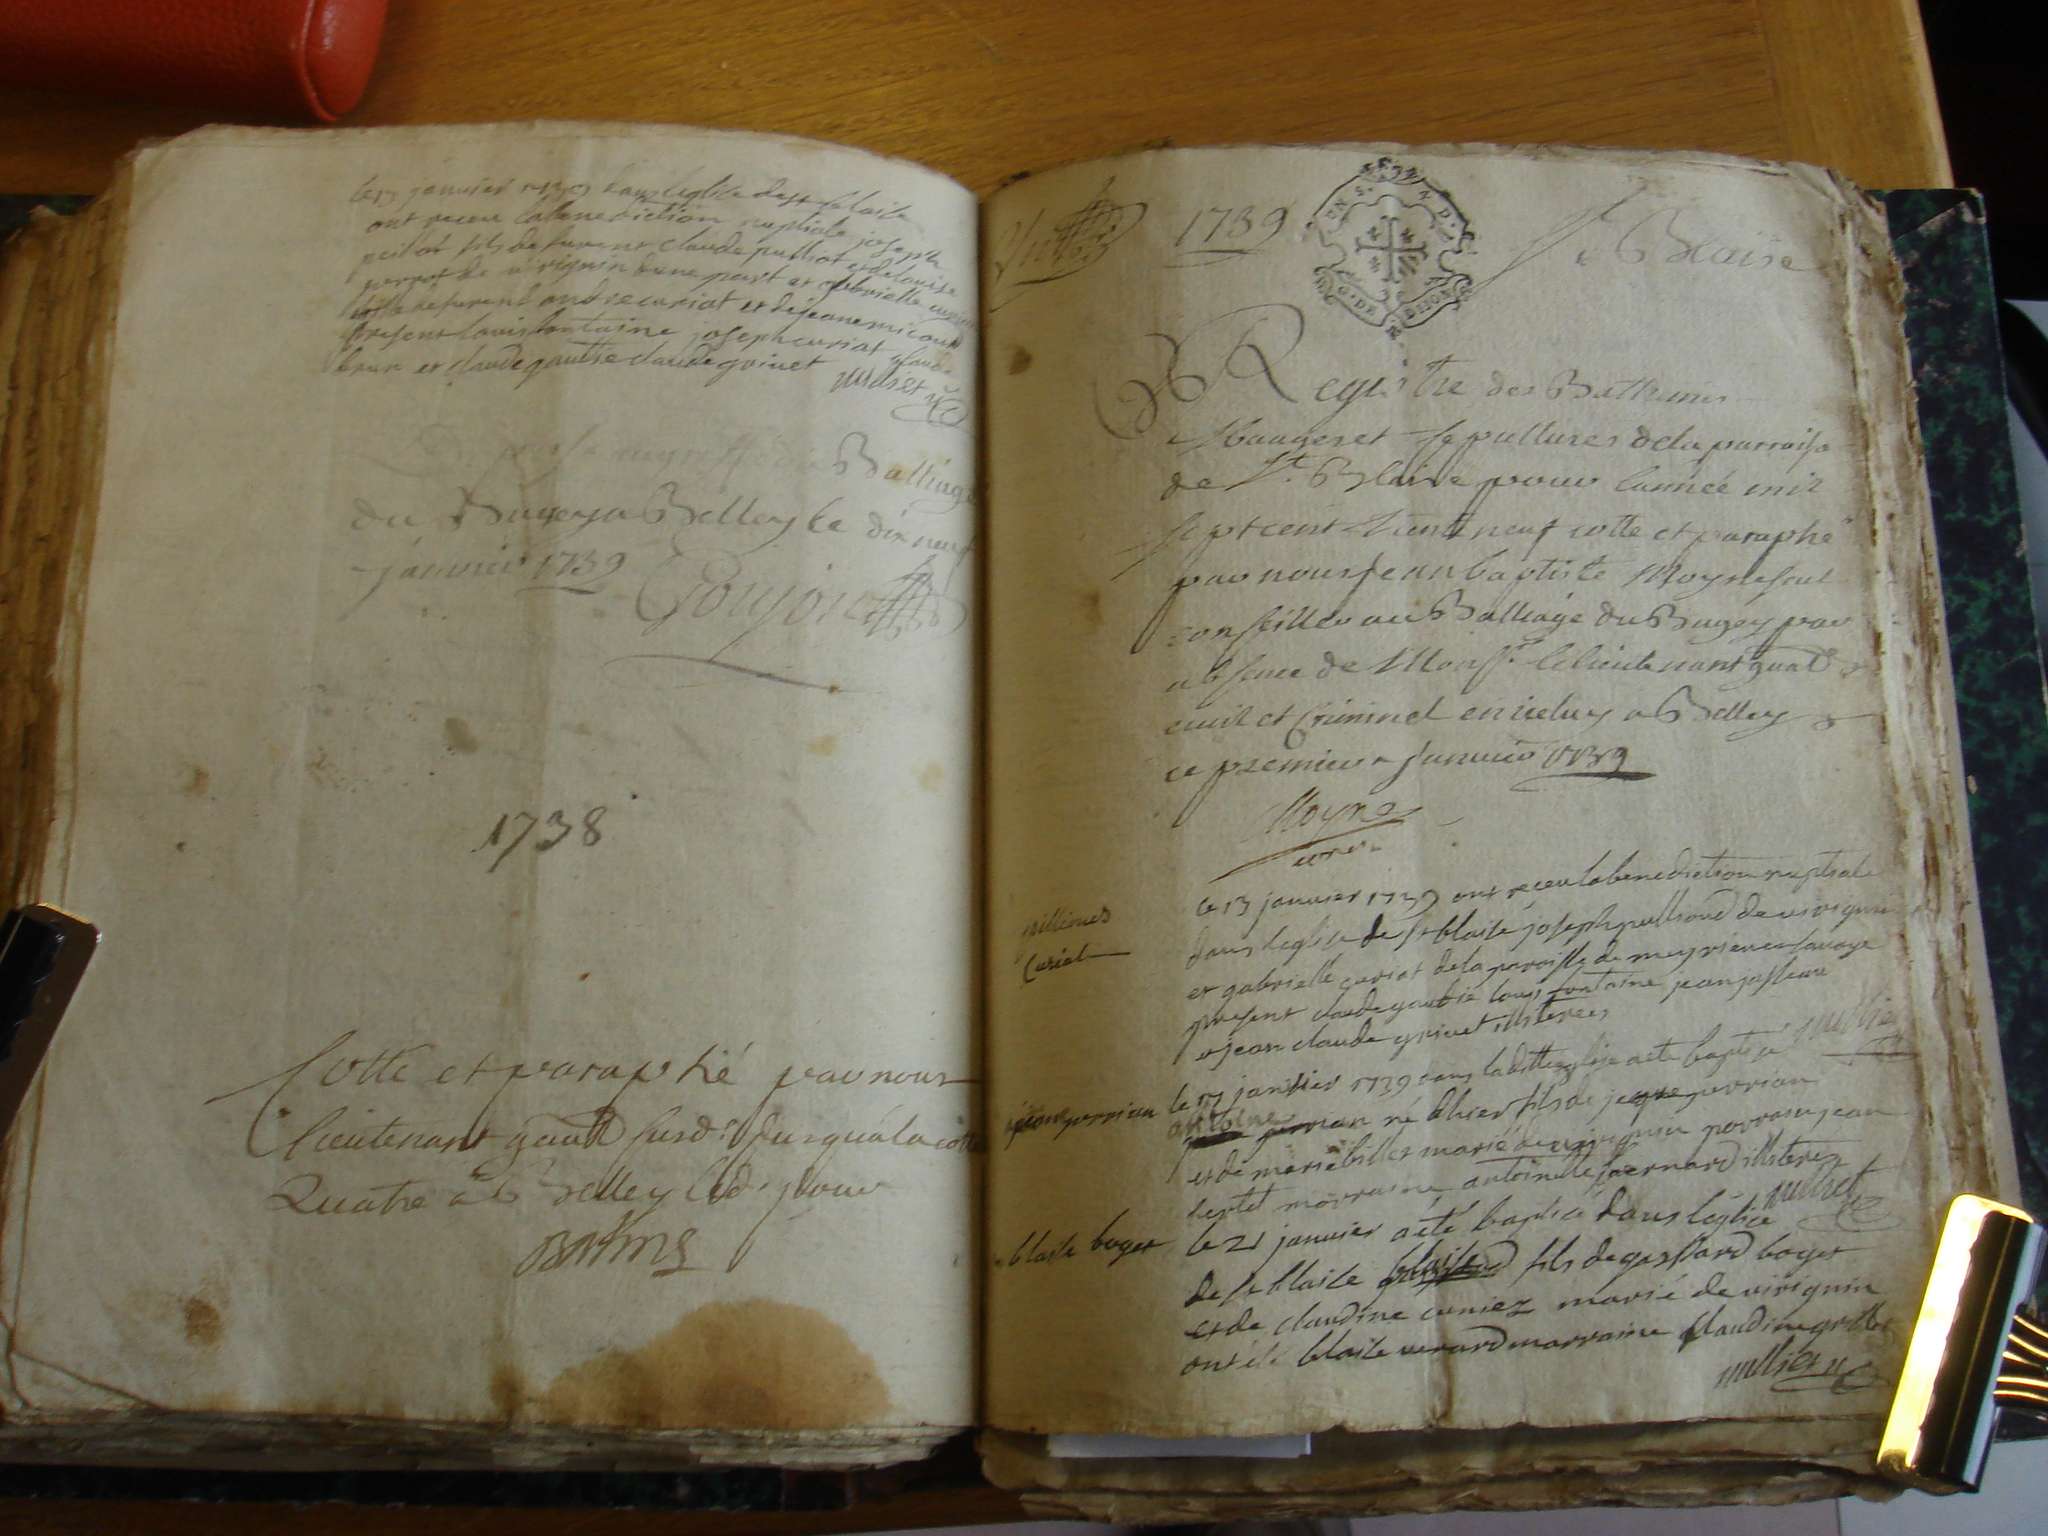 le 13 janvier 1739 dans leglise de st blaise
ont receu la benediction nuptiale joseph
fils de furent claude pulliot et de louise
de virignin dune part et gabrielle
defurent andre curiat et de jeane micoud
present louis fontaine joseph curiat glaude
brun et claude gautie claude grivet
milliet
Balliage
du Bugey a Belley le dix neuf
janvier 1739 Goujon
1738
Cotte et paraphé par nous
lieutenant gnal susd. jusqu'a la cotte
Quatre a Belley led. jour
1739 St Blaise
GEN. DE DIJON
Registre des Bathemes
Mariages et sepultures de la parroisse
de St. Blaise pour lannée mil
sept cent trente neuf cotte et paraphé
par nous Jean baptiste Moyne seul
conseiller au Balliage du Bugey par
absence de Monsr. le lieutenant gnal
civil et Criminel en iceluy a Belley
ce premier Janvier 1739
Moyne
Curiat
le 13 janvier 1739 ont receu la benediction nuptiale
dans leglise de st blaise joseph de virignin
et gabrielle curiat de la paroisse de meyrieu en savoye
present claude gautie louys fontaine jean
et jean claude grivet illiterez
milliet
perrian
le 17 janvier 1739 dans laditte eglise a ete baptisé
antoine perrian né dhier fils de jaque perrian
et de marie billet marié de virignin parrain jean
marraine antoinette bernard illiterez
milliet
blaise boget
le 21 janvier a eté baptisé dans léglise
de st blaise blaise fils de gaspard boget
et de claudine cuniez marié de virignin
ont été blaise verard marraine claudine grillet
milliet